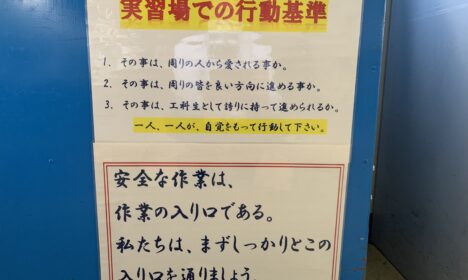 実習場での行動基準
1. その事は、周りの人から愛される事か。
2. その事は、周りの皆を良い方向に進める事か。
3. その事は、工科生として誇りに持って進められるか。
一人、一人が、自覚をもって行動して下さい。
安全な作業は、
作業の入り口である。
私たちは、まずしっかりとこの
入り口を通りましょう。